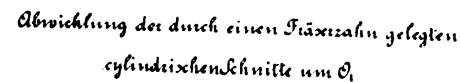 Abwicklung der durch einen Fräserzahn gelegten
cylindrischen Schnitte um O₁